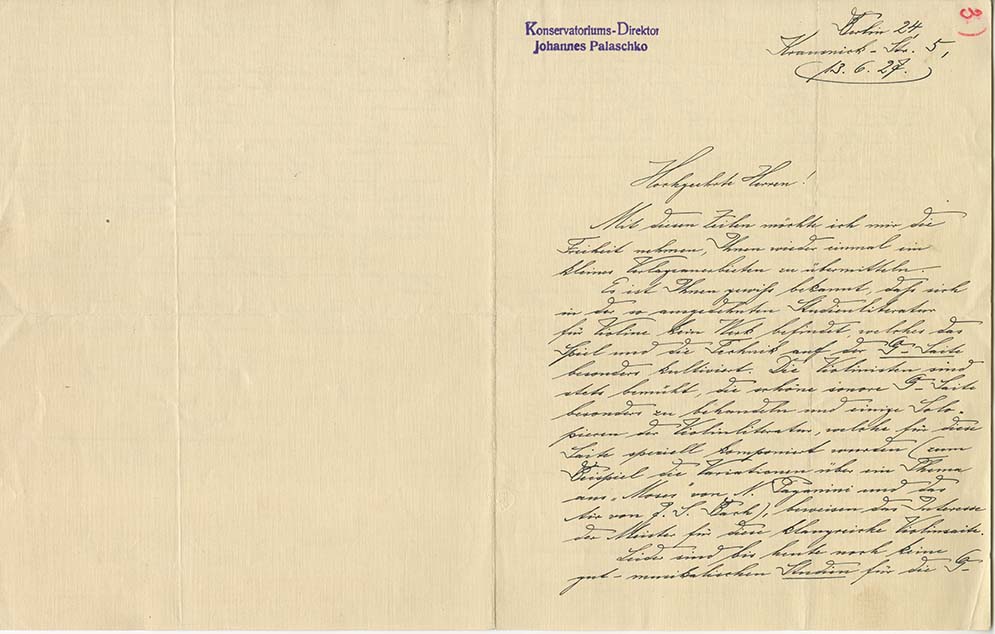 3)
Konservatoriums-Direktor
Johannes Palaschko
Berlin 24,
Krausnick-Str. 5,
13. 6. 27.
Hochgeehrte Herren!
Mit diesen Zeilen möchte ich mir die
Freiheit nehmen, Ihnen wieder einmal ein
kleines Verlagsanerbieten zu übermitteln.
Es ist Ihnen gewiß bekannt, daß sich
in der so ausgedehnten Studienliteratur
für Violine kein Werk befindet, welches das
Spiel und die Technik auf der G-Saite
besonders kultiviert. Die Violinisten sind
stets bemüht, die schöne sonore G-Saite
besonders zu behandeln und einige Solo-
piecen der Violinliteratur, welche für diese
Saite speziell komponiert wurden (zum
Beispiel die Variationen über ein Thema
aus „Moses" von N. Paganini und das
Air von J. S. Bach), beweisen das Interesse
der Meister für diese klangreiche Violinsaite.
Leider sind bis heute noch keine
gut-musikalischen Studien für die G-